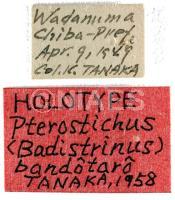 Wadanuma
Chiba-Pref.
Apr. 9, 1549
Col. K. TANAKA
HOLOTYPE
Pterostichus
(Badistrinus)
bandôtarô
TANAKA, 1958